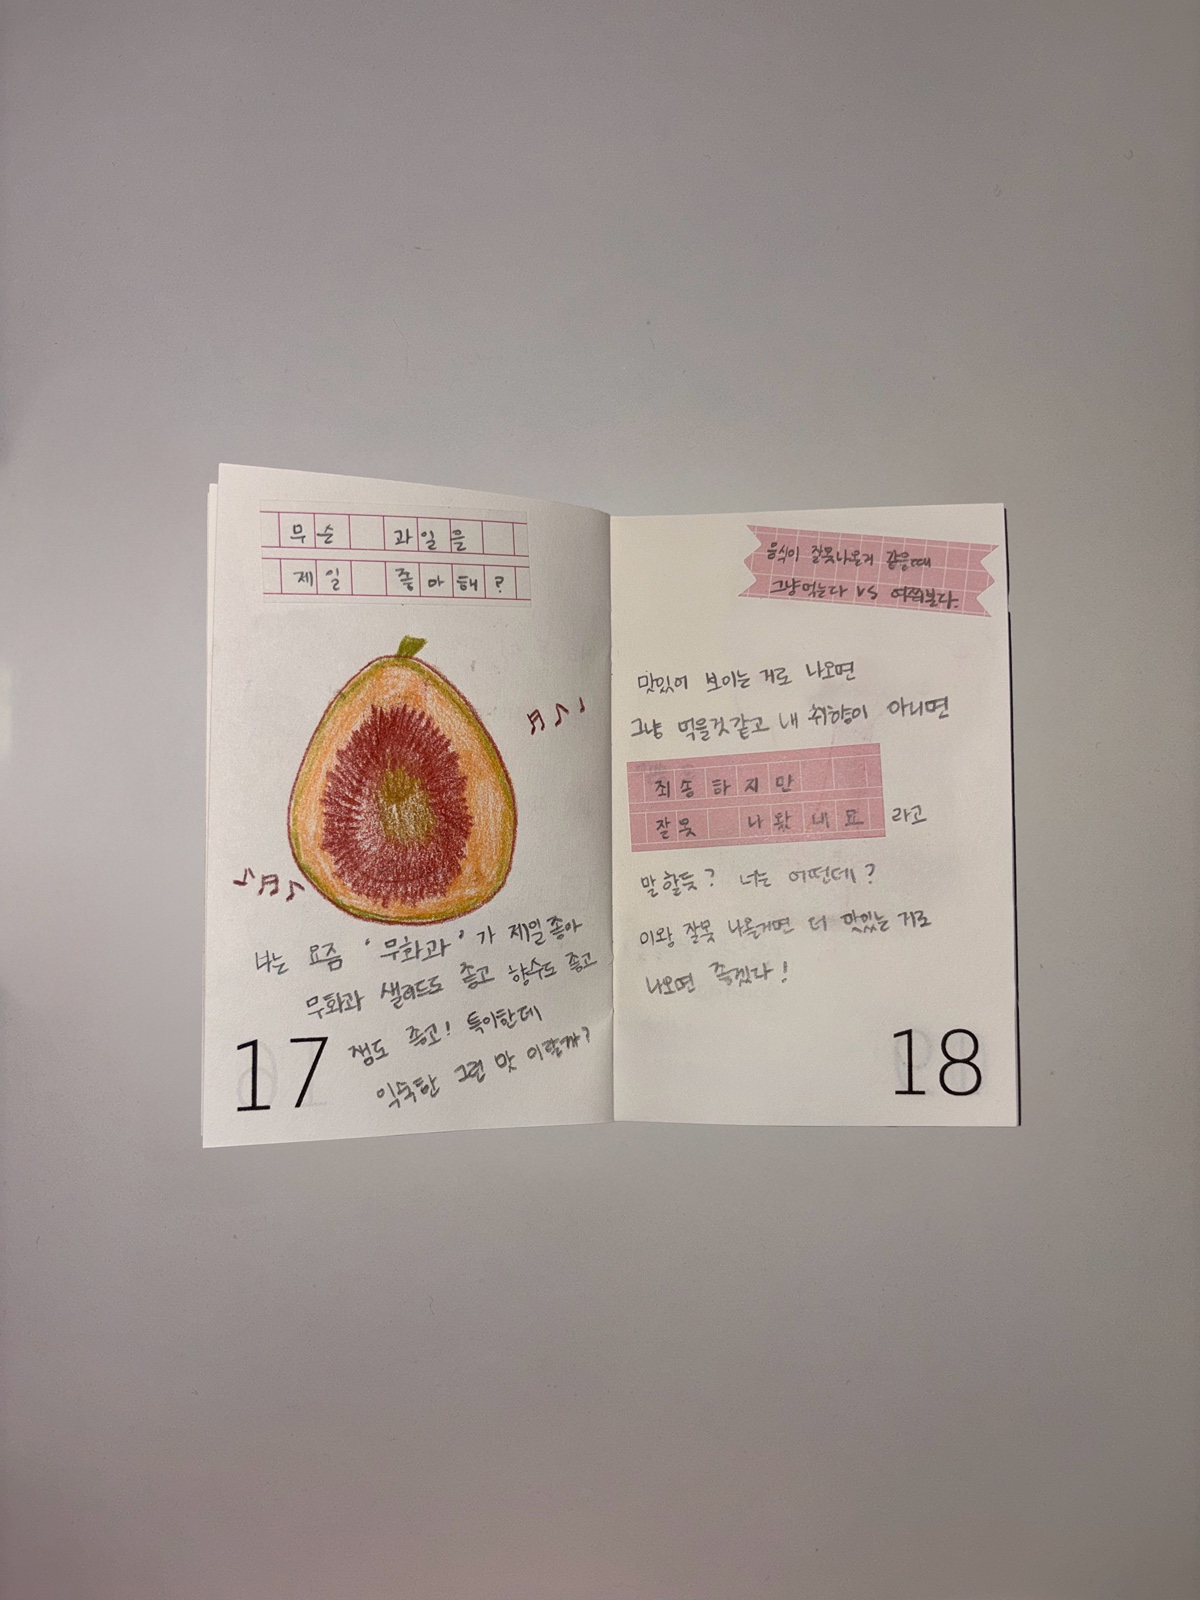 무슨 과일을
제일 좋아해?
나는 요즘 '무화과'가 제일 좋아
무화과 샐러드도 좋고 향수도 좋고
잼도 좋고! 특이한데
익숙한 그런 맛 이랄까?
17
음식이 잘못나온거 같을때
그냥먹는다 vs 여쭤본다.
맛있어 보이는 거로 나오면
그냥 먹을것같고 내 취향이 아니면
죄송하지만
잘못 나왔네요 라고
말할듯? 너는 어떤데?
이왕 잘못 나올거면 더 맛있는 거로
나오면 좋겠다!
18